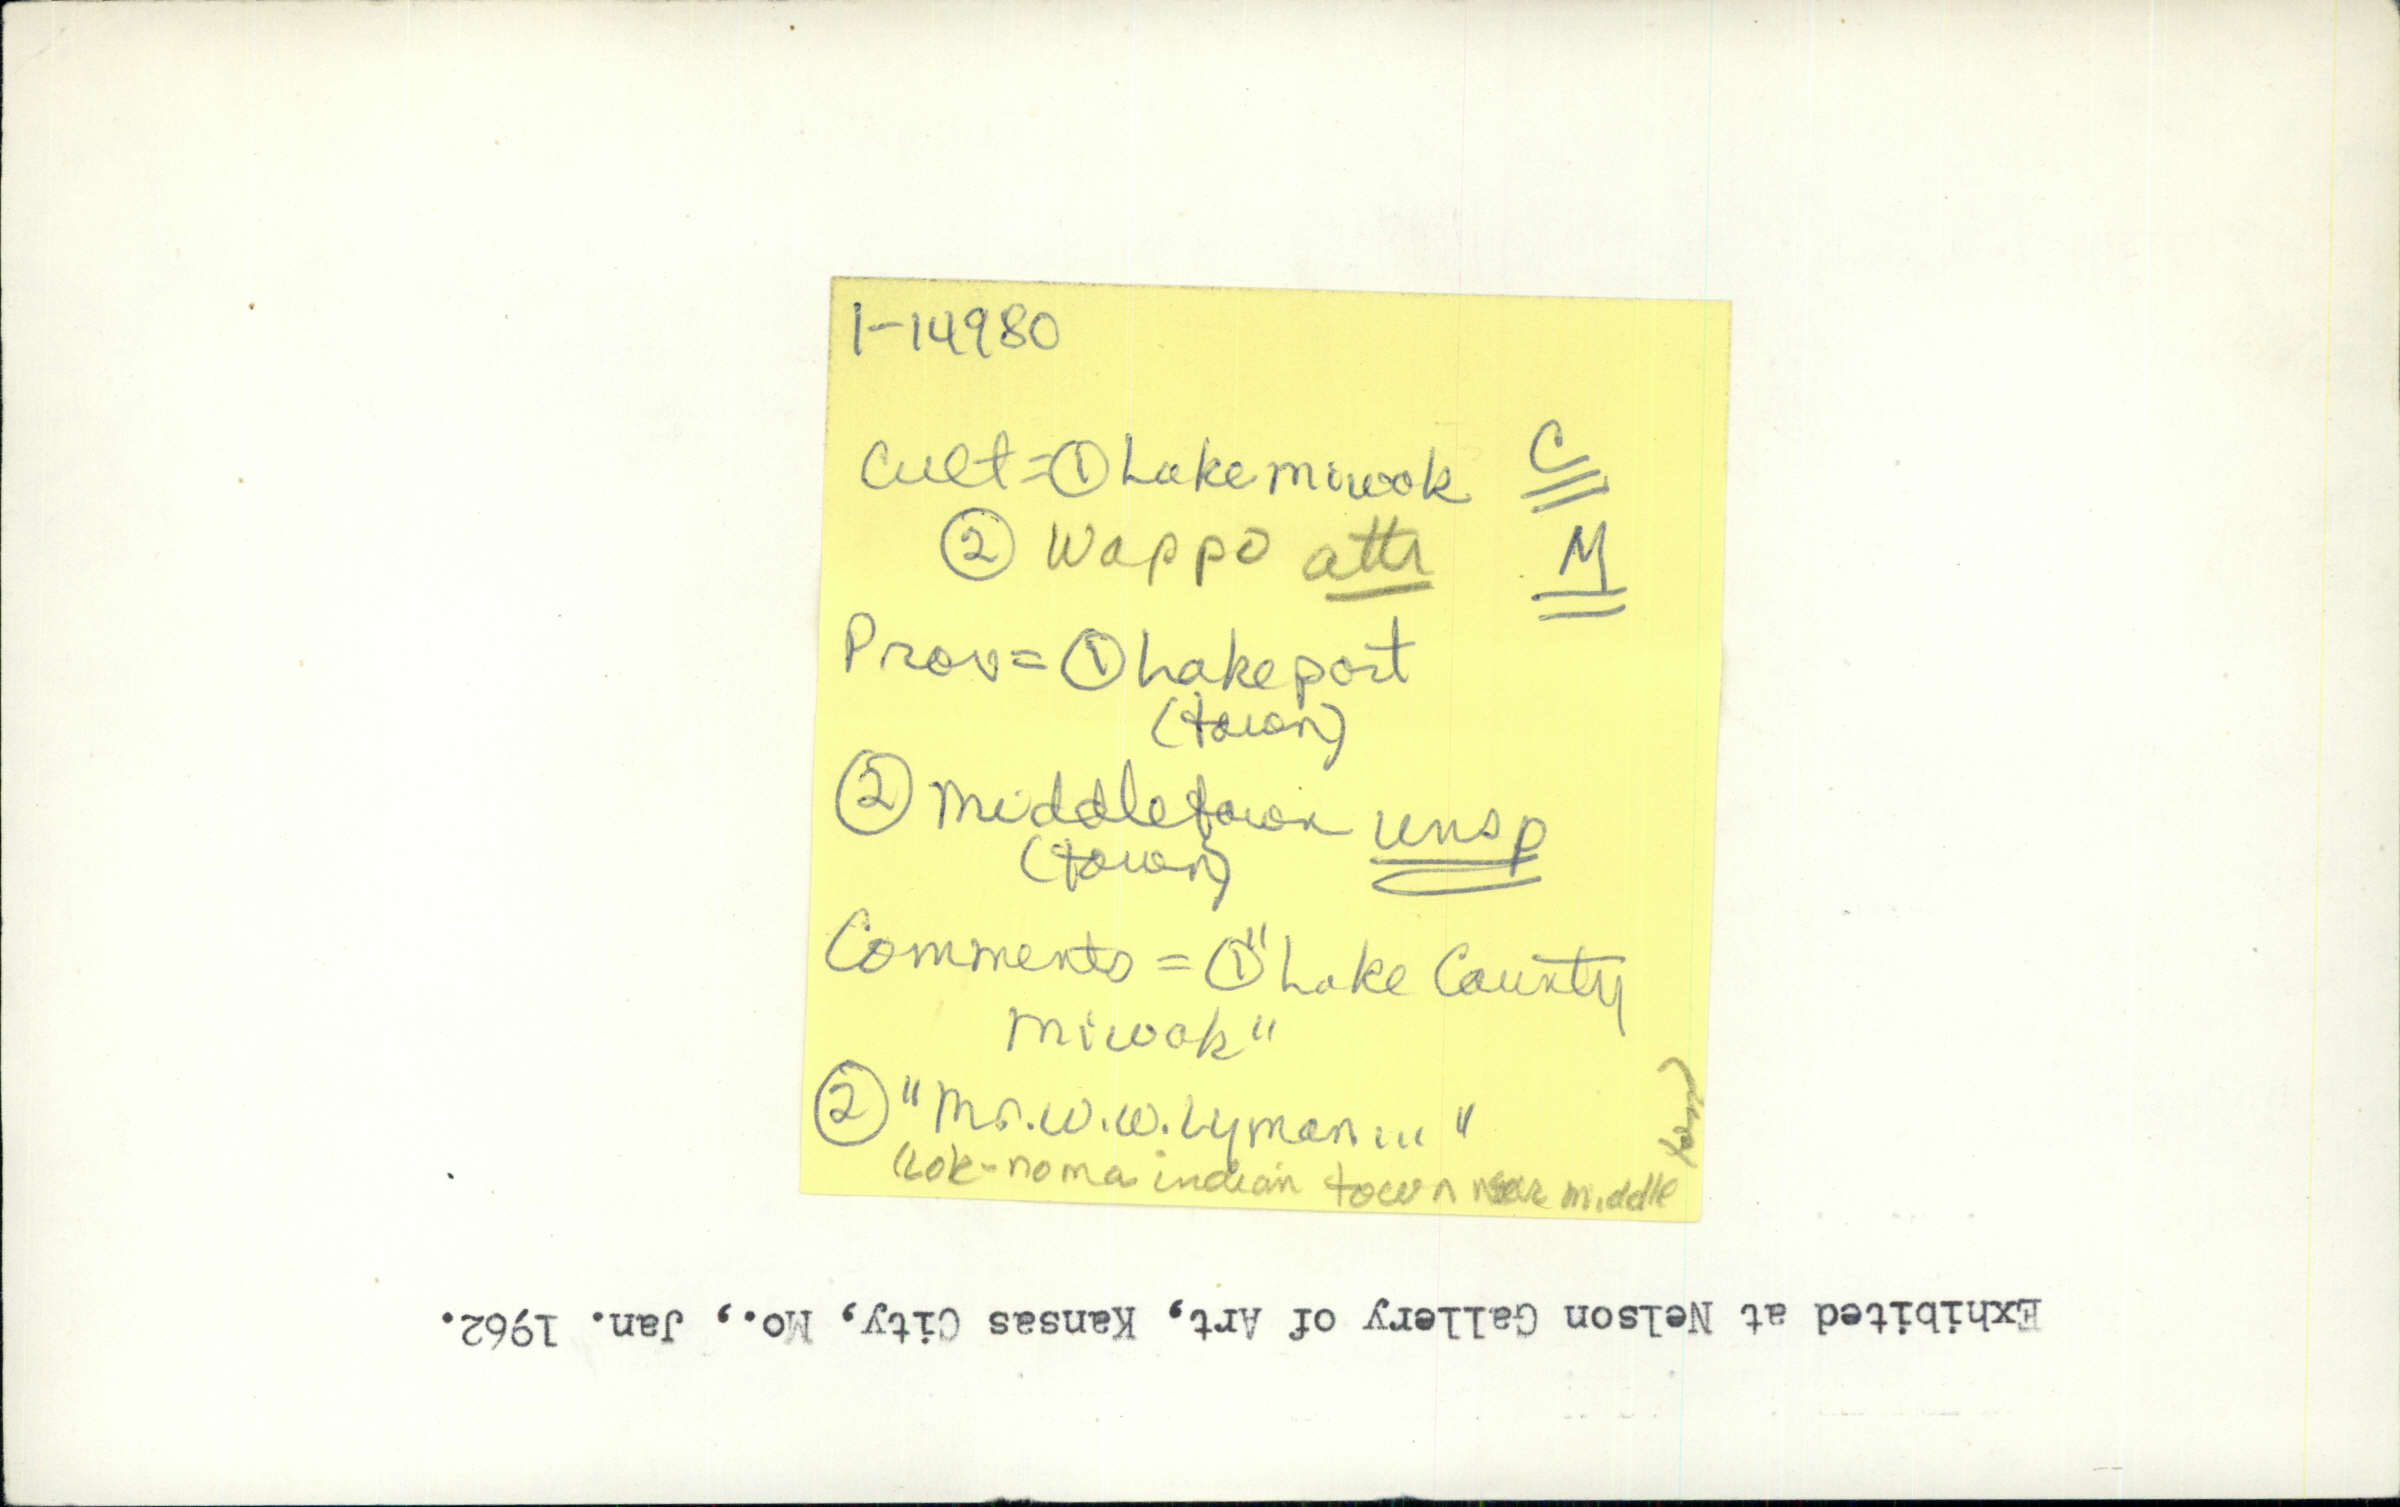 1-14980
Cult = ① Lake Miwok C
② Wappo attr M
Prov = ① Lakeport
(town)
② Middletown unsp
(town)
Comments = ① "Lake County
Miwok"
② "Mr. W. W. Lyman ... "
(Lok-noma indian town near middle
town)
Exhibited at Nelson Gallery of Art, Kansas City, Mo., Jan. 1962.